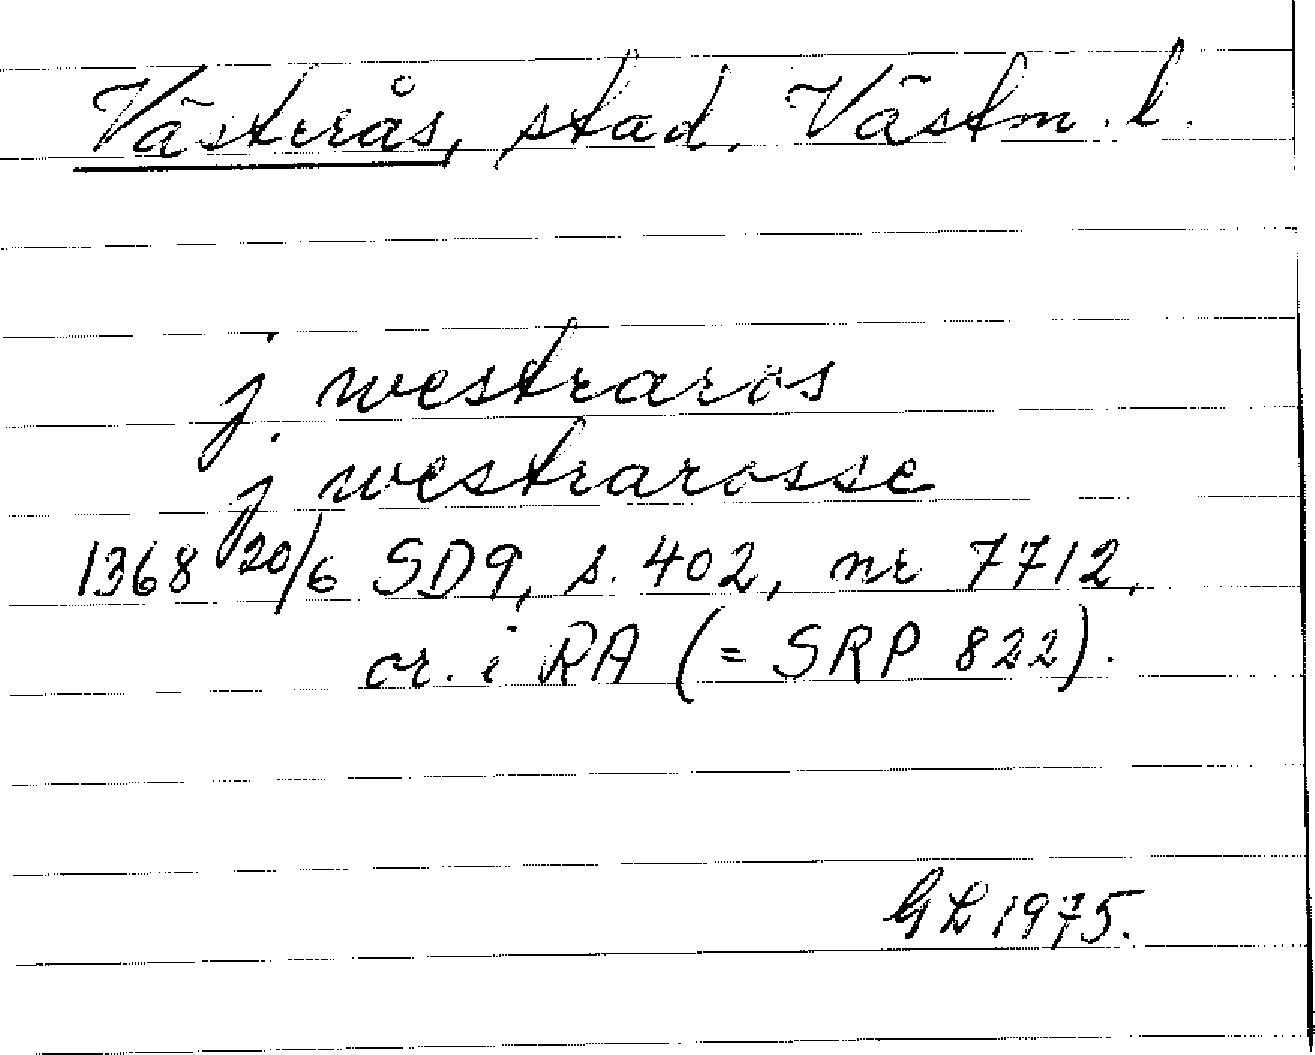 Västerås, stad. Västm. l.
j westraros
j westrarosse
1368 20/6 SD9, s. 402, nr 7712,
or. i RA (= SRP 822).
GL 1975.